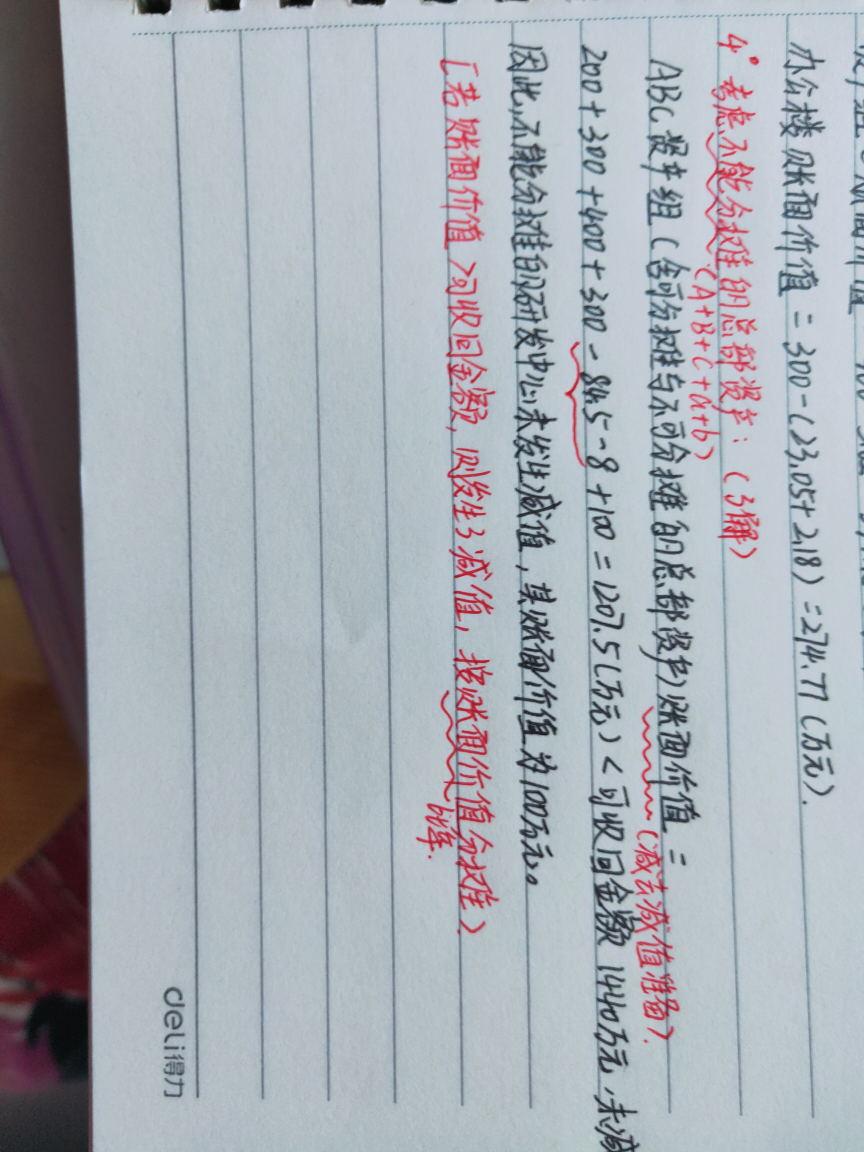 办公楼账面价值 = 300-(23.05+2.18) = 274.77(万元).
4° 考虑不能分摊的总部资产:(了解)
(A+B+C+a+b)
ABC资产组(含可分摊与不可分摊的总部资产)账面价值 =
(减去减值准备).
200+300+400+300-84.5-8+100=1207.5(万元)<可收回金额 1440万元,未减
因此,不能分摊的研发中心未发生减值,其账面价值为100万元。
[若账面价值>可收回金额,则发生了减值,按账面价值分摊)
比率.
deli得力